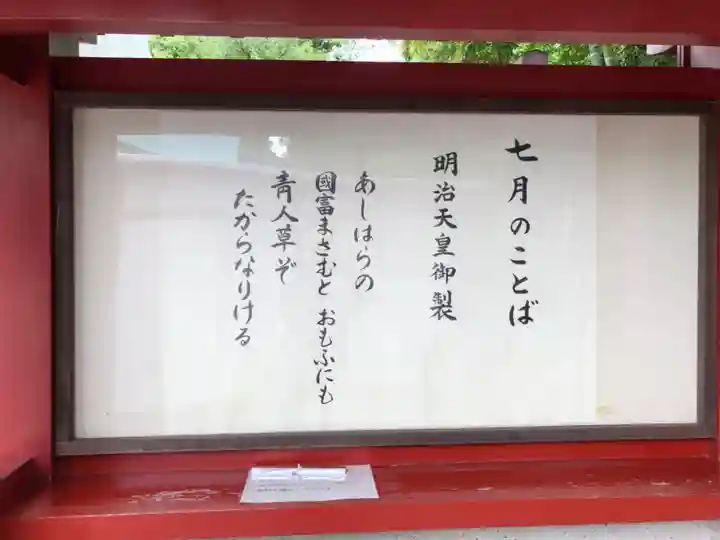 七月のことば
明治天皇御製
あしはらの
國富まさむと おもふにも
青人草ぞ
たからなりける